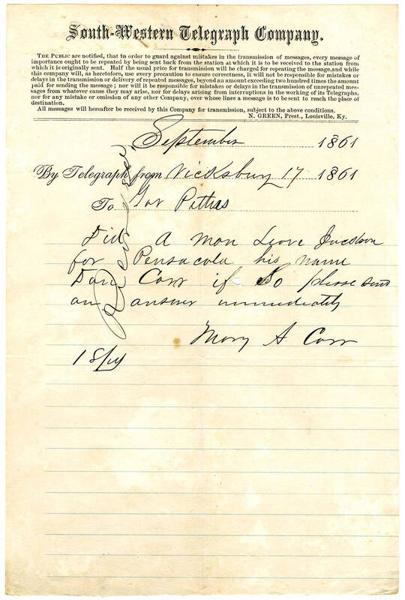 South-Western Telegraph Company.
THE PUBLIC are notified, that in order to guard against mistakes in the transmission of messages, every message of
importance ought to be repeated by being sent back from the station at which it is to be received to the station from
which it is originally sent. Half the usual price for transmission will be charged for repeating the message, and while
this company will, as heretofore, use every precaution to ensure correctness, it will not be responsible for mistakes or
delays in the transmission or delivery of repeated messages, beyond an amount exceeding two hundred times the amount
paid for sending the message; nor will it be responsible for mistakes or delays in the transmission of unrepeated messages
from whatever cause they may arise, nor for delays arising from interruptions in the working of its Telegraphs,
nor for any mistake or omission of any other Company, over whose lines a message is to be sent to reach the place of
destination.
All messages will hereafter be received by this Company for transmission, subject to the above conditions.
N. GREEN, Prest., Louisville, Ky.
September 1861
By Telegraph from Vicksburg 17 1861
To Gov Pettus
Did A man Leave Jackson
for Pensacola his name
Dan Carr if So please send
an answer immediately
Mary A Carr